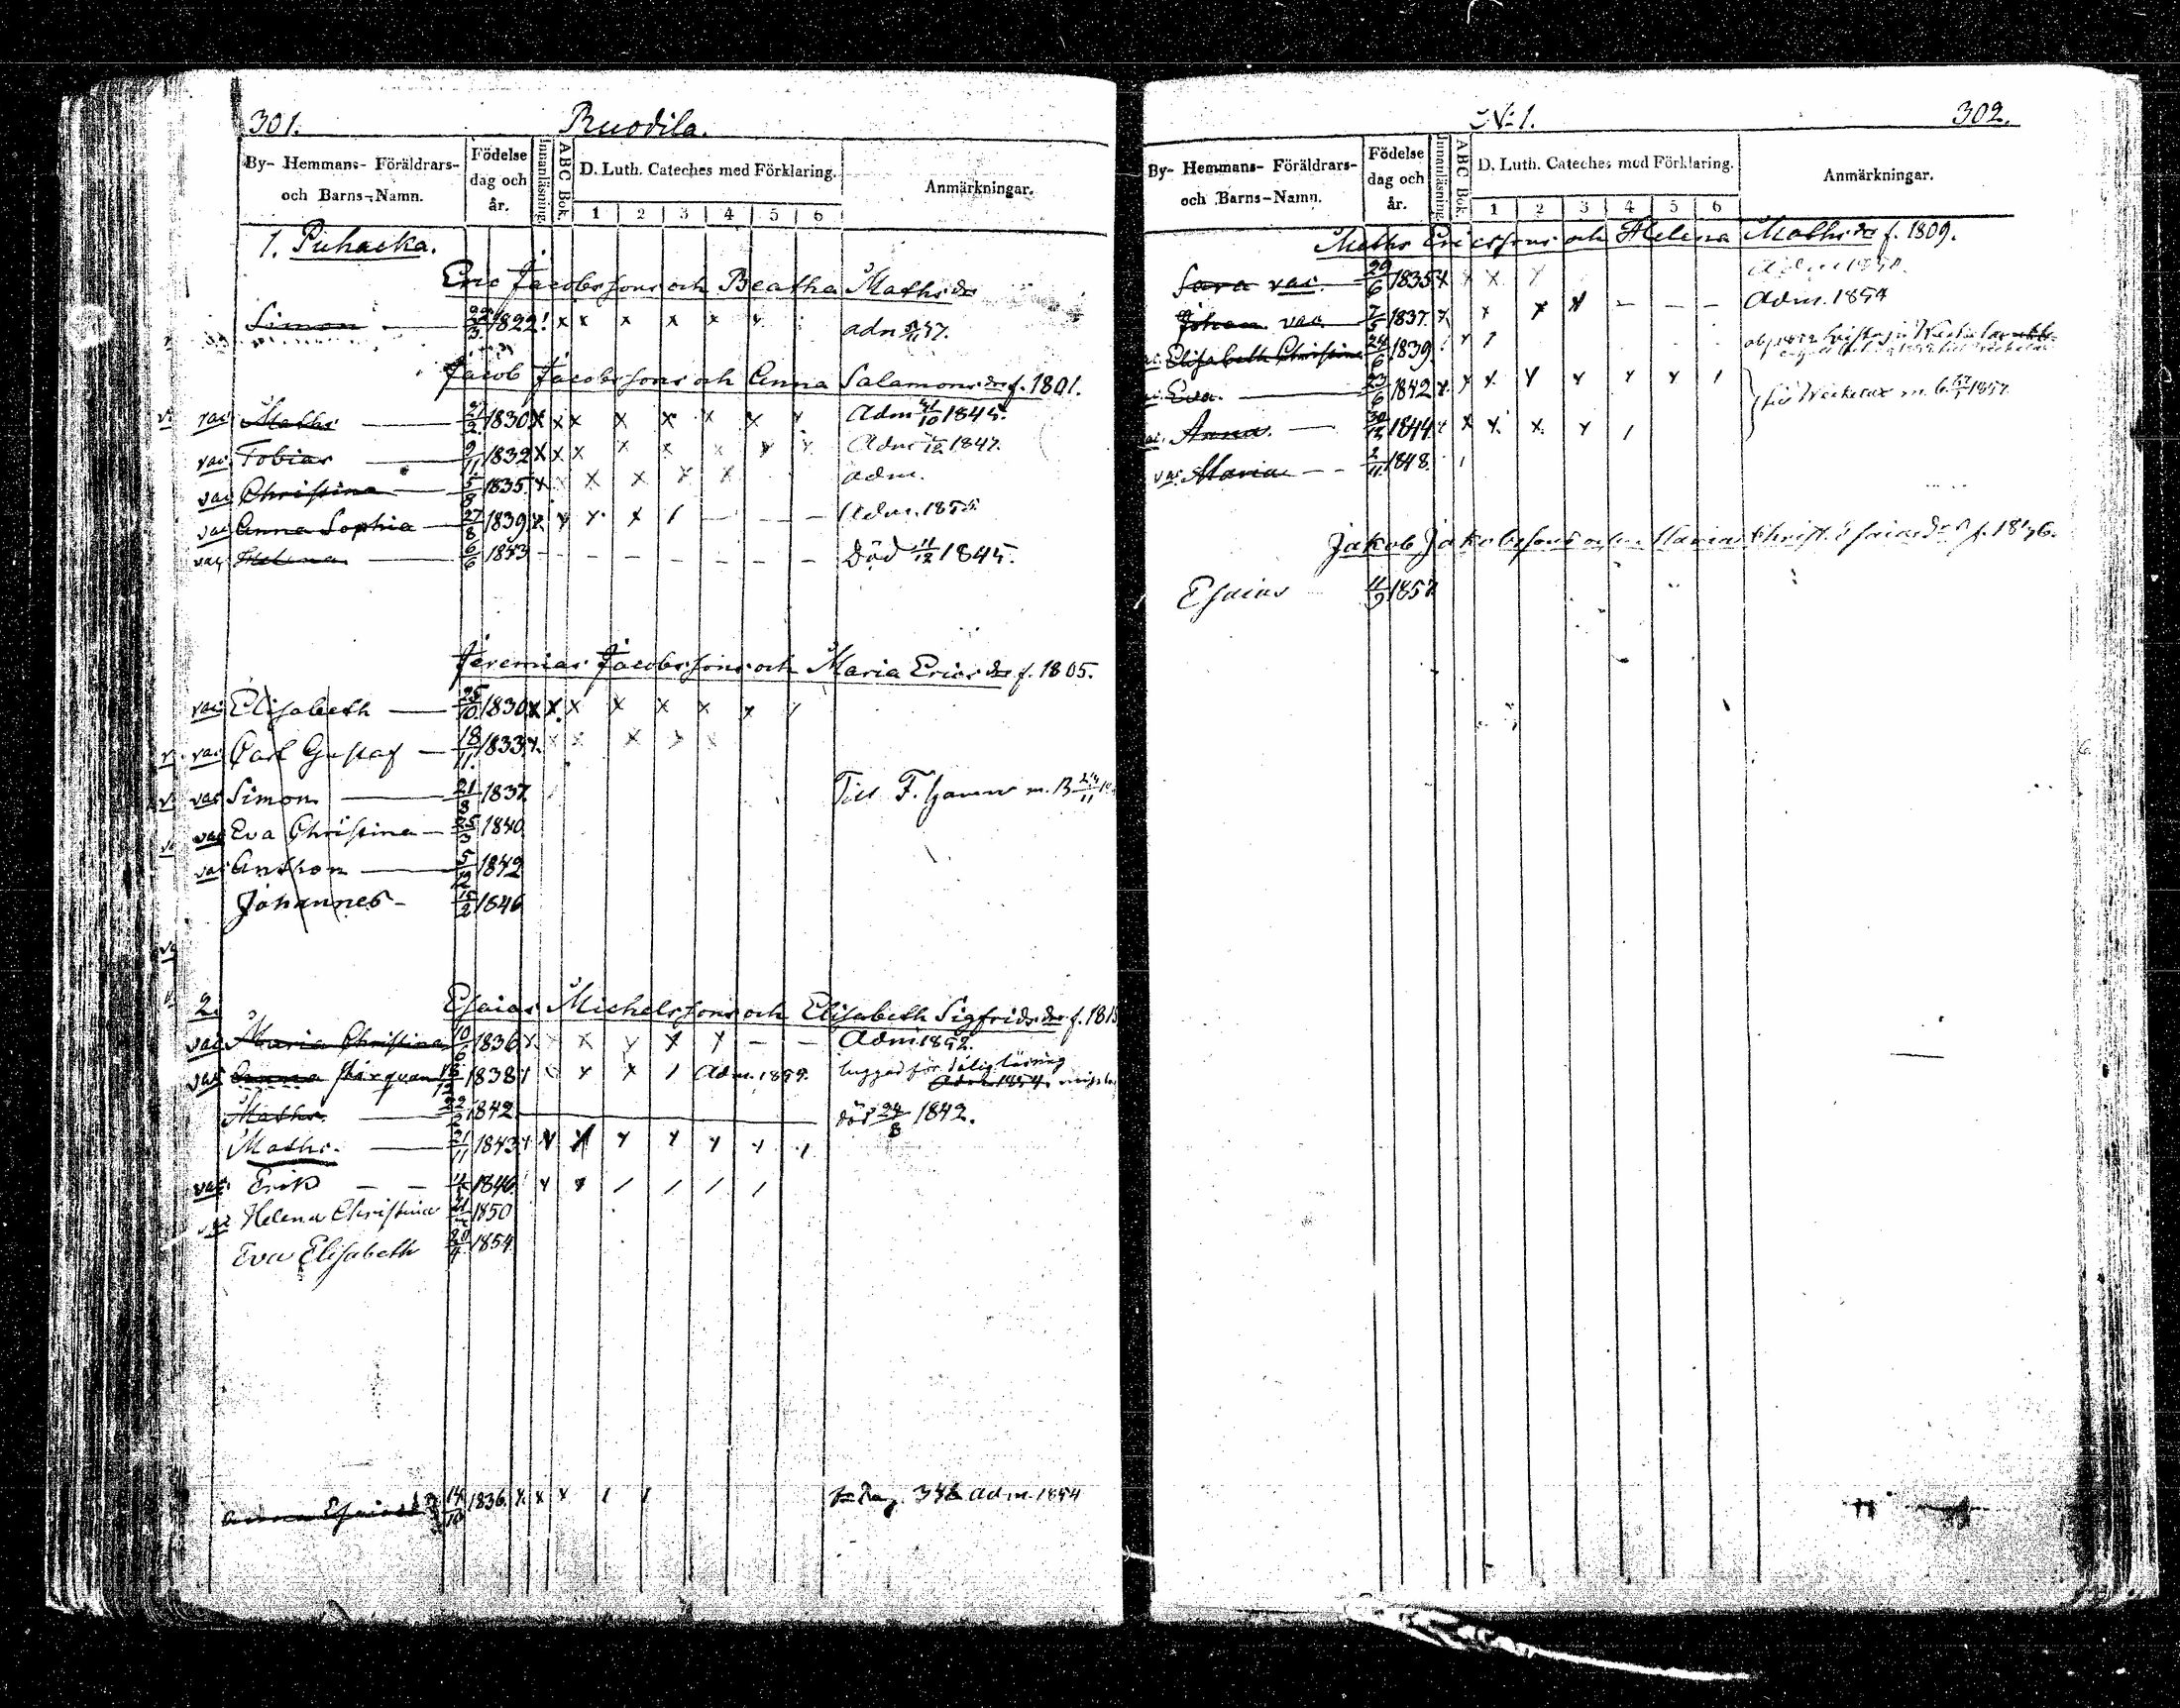 301. Ruodila.
By- Hemmans- Föräldrars- och Barns-Namn. Födelse dag och år. Innanläsning. ABC Bok. D. Luth. Cateches med Förklaring. 1 2 3 4 5 6 Anmärkningar.
1. Puhacka.
Eric Jacobssons och Beatha Mathsdr
Simon 22/3 1822 x x x x x adm 47.
Jacob Jacobssons och Anna Salamonsdr f. 1801.
vac Maths 27/2 1830 x x x x x x x Adm 31/10 1845.
vac Tobias 9/11 1832 x x x x x x Adm 1847.
vac Christina 5/8 1835 x x x x x adm.
vac Anna Sophia 27/8 1839 x x x x / – – – Adm. 1855
vac Helena 6/6 1843 – – – – – – – Död 11/12 1845.
Jeremias Jacobssons och Maria Ericsdr f. 1805.
vac Elisabeth 25/10 1830 x x x x x x x /
vac Carl Gustaf 18/11 1833 x x x x x x
vac Simon 21/8 1837 Till F. m. B 24/11
vac Eva Christina 25/3 1840
vac Anthon 5/12 1842
Johannes 15/2 1846
2. Esaias Michelssons och Elisabeth Sigfridsdr f. 181
vac Maria Christina 10/6 1836 x x x x x – – Adm 1852.
vac Anna 1838 x x / Adm. 1855. för dålig läsning
Adm 1854
Maths 22/2 1842 död 24/8 1842.
Maths. 21/11 1843 x x x x x x x x
vac Erik 1846 x x / / / /
vac Helena Christina 1850
Eva Elisabeth 20/4 1854
Anna Esaiasdr 14/10 1836. x x x / / Pag. 346 adm. 1854
No 1. 302.
By- Hemmans- Föräldrars- och Barns-Namn. Födelse dag och år. Innanläsning. ABC Bok. D. Luth. Cateches med Förklaring. 1 2 3 4 5 6 Anmärkningar.
Maths Ericssons och Helena Mathsdr f. 1809.
Sara vac. 29/6 1835 x x x x Adm 1850.
Johan vac. 7/5 1837 x x x x – – – Adm. 1854
Elisabeth Christina 24/6 1839 x /
Eva 23/6 1842 x x x x x x x / 1857
Anna. 30/12 1844 x x x x x /
vac. Maria 2/11 1848 /
Jakob Jakobssons och Maria Christ. Esaiasdr f. 1836.
Esaias 11/9 1857